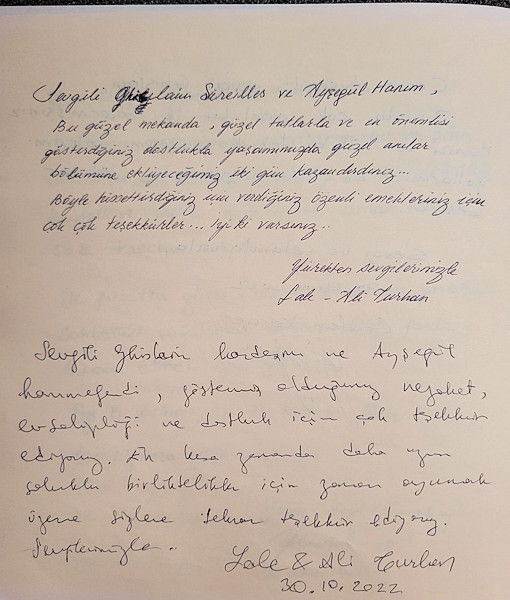 Sevgili Ghislain Sireilles ve Ayşegül Hanım,
Bu güzel mekanda, güzel tatlarla ve en önemlisi
gösterdiğiniz dostlukla yaşamımızda güzel anılar
bölümüne ekliyeceğimiz iki gün kazandırdınız...
Böyle hissettirdiğiniz için verdiğiniz özenli emekleriniz için
çok çok teşekkürler... İyi ki varsınız..
Yürekten sevgilerimizle
Lale - Ali Turhan
Sevgili Ghislain kardeşim ve Ayşegül
hanımefendi, göstermiş olduğunuz nezaket,
evsahipliği ve dostluk için çok teşekkür
ediyoruz. En kısa zamanda daha uzun
soluklu birliktelikler için zaman ayırmak
üzere sizlere tekrar teşekkür ediyoruz.
Sevgilerimizle..
Lale & Ali Turhan
30.10.2022